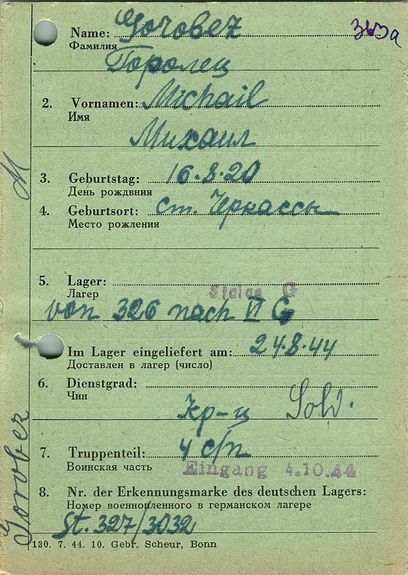 Name: Gorobez 363a
Фамилия
Горобец
2. Vornamen: Michail
Имя
Михаил
3. Geburtstag: 16.8.20
День рождвния
4. Geburtsort: ст. Черкассы
Место рождения
5. Lager: Stalag G
Лагер
von 326 nach VI G
Im Lager eingeliefert am: 24.8.44
Доставлен в лагер (число)
6. Dienstgrad:
Чин
Кр-ц Sold.
7. Truppenteil: 4 с/п
Воинская часть Eingang 4.10.44
8. Nr. der Erkennungsmarke des deutschen Lagers:
Номер военнопленного в германском лагере
St. 327/3032
130. 7. 44. 10. Gebr. Scheur, Bonn
M
Gorobez